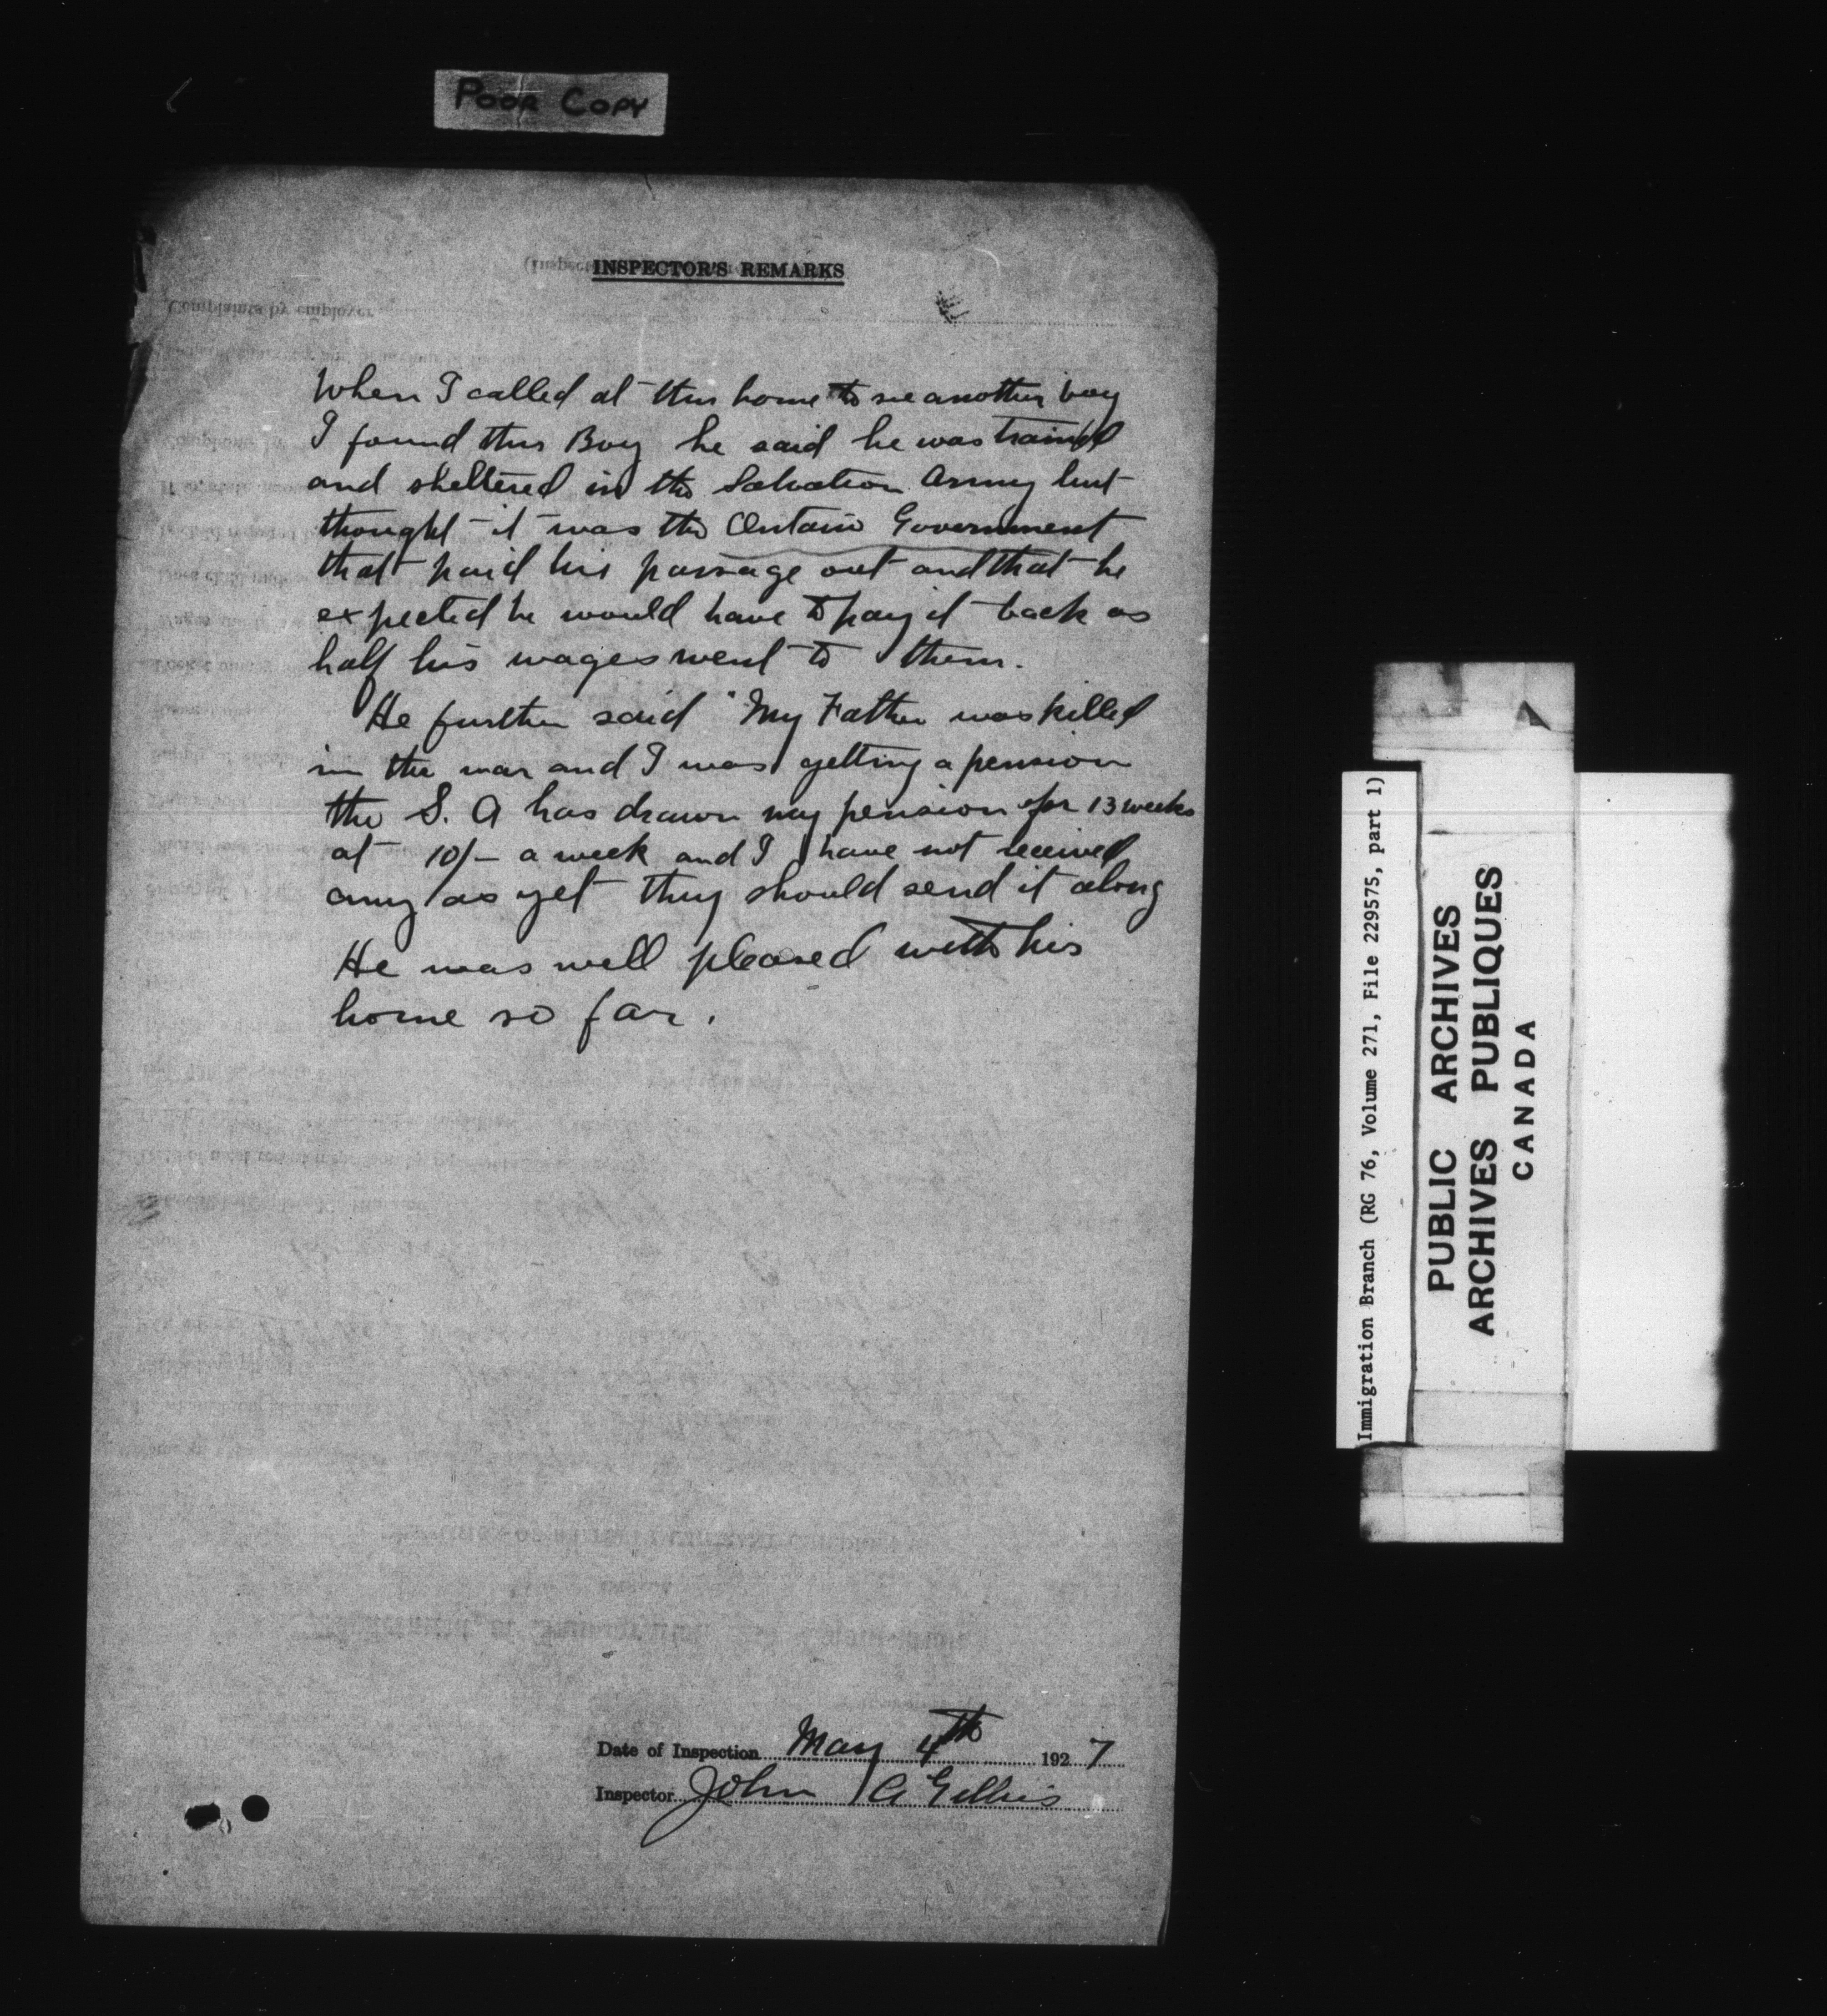 POOR COPY
INSPECTOR'S REMARKS
Complaints by employer
When I called at this home to see another boy
I found this Boy he said he was trained
and sheltered in the Salvation Army but
thought it was the Ontario Government
that paid his passage out and that he
expected he would have to pay it back as
half his wages went to them.
He further said "My Father was killed
in the war and I was getting a pension
the S. A has drawn my pension for 13 weeks
at 10/- a week and I have not received
any as yet they should send it along
He was well pleased with his
home so far.
Date of Inspection May 4th 1927
Inspector John A Gillies
Immigration Branch (RG 76, Volume 271, File 229575, part 1)
PUBLIC ARCHIVES
ARCHIVES PUBLIQUES
CANADA